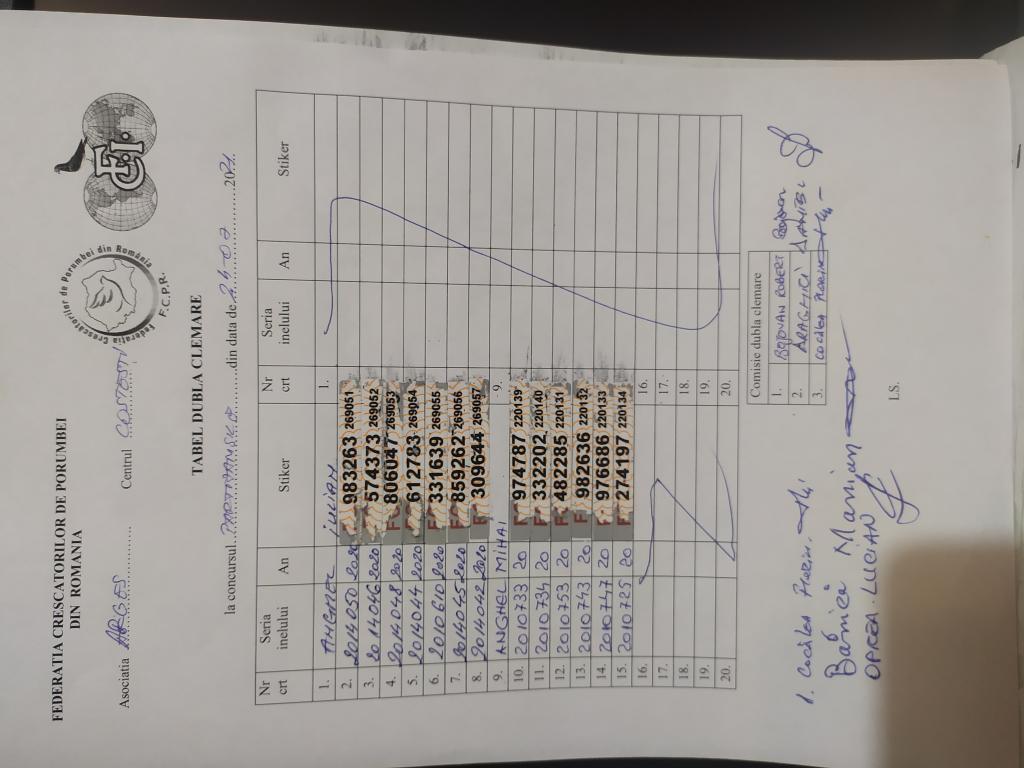 FEDERATIA CRESCATORILOR DE PORUMBEI
DIN ROMANIA
Federatia Crescatorilor de Porumbei din România
F.C.P.R.
FCI
Asociatia ARGES Centrul
TABEL DUBLA CLEMARE
la concursul din data de 24 07 2021
Nr crt Seria inelului An Stiker Nr crt Seria inelului An Stiker
1. ANGHEL iulian 1.
2. 2014050 2020 983263 269051
3. 2014046 2020 574373 269052
4. 2014048 2020 806047 269053
5. 2014044 2020 612783 269054
6. 2010610 2020 331639 269055
7. 2014045 2020 859262 269056
8. 2014042 2020 309644 269057
9. ANGHEL MIHAI 9.
10. 2010733 20 974787 220139
11. 2010734 20 332202 220140
12. 2010753 20 482285 220131
13. 2010743 20 982636 220132
14. 2010747 20 976686 220133
15. 2010725 20 274197 220134
16. 16.
17. 17.
18. 18.
19. 19.
20. 20.
Comisie dubla clemare
1. BOJOVAN ROBERT
2. ARAGHICI DANIEL
3. COCÎLEA FLORIN
1. Cocîlea Florin
Barnica Marian
OPREA LUCIAN
LS.